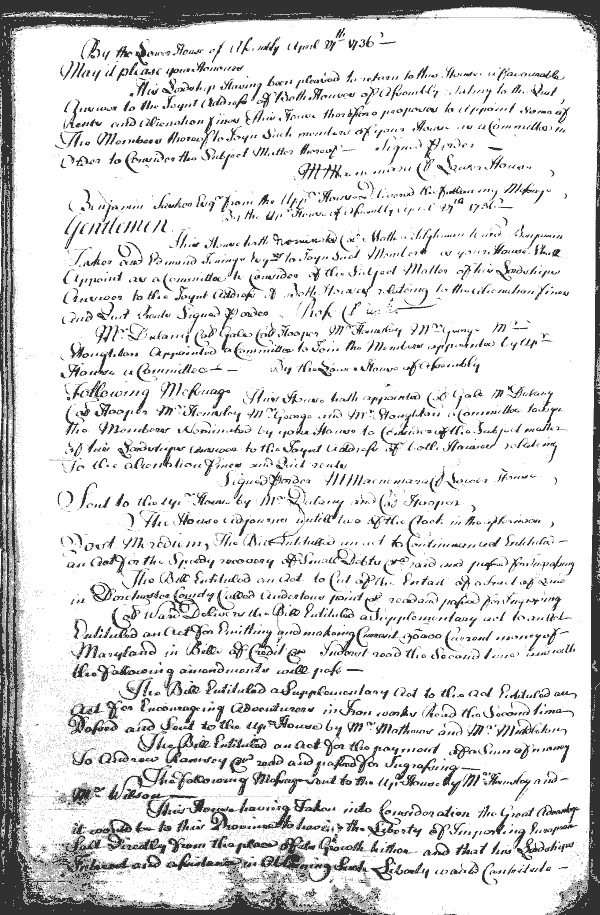 By the Lower House of Assembly April 27th 1736
May it please your Honours
His Lordship having been pleased to return to this House a Favourable
Answer to the Joynt Address of Both Houses of Assembly relating to the Quit
Rents and Alienation fines this House therefore proposes to Appoint some of
The Members thereof to Joyn Such members of your House as a Committee in
Order to Consider the Subject Matter thereof Signed Order
M Macnemara Cl Lower House
Benjamin Tasker Esqr from the Uppr House delivered the following Message
Gentlemen By the Upr House of Assembly April 27th 1736
This House hath Nominated Coll Matth Tilghman Ward Benjamin
Tasker and Edmund Jenings Esqrs to Joyn Such Members as your House shall
Appoint as a Committee to Consider of the Subject Matter of his Lordships
Answer to the Joynt Address of Both Houses relating to the Alienation fines
and Quit Rents Signed Order
Mr Dulany Coll Gale Coll Hooper Mr Hemsley Mr George Mr
Stoughton Appointed a Committee to Join the Members appointed by Upr
House a Committee By the Lower House of Assembly
Following Message This House hath appointed Coll Gale Mr Dulany
Coll Hooper Mr Hemsley Mr George and Mr Stoughton a Committee to Joyn
the Members Nominated by your House to Consider of the Subject matter
of his Lordships answer to the Joynt Address of both Houses relating
to the alienation fines and Quit rents
Signed Order M Macnemara Cl Lower House
Sent to the Upr House by Mr Dulany and Coll Hooper
The House adjourns untill two of the Clock in the afternoon
Post Meridiem, The Bill Entituled an act to Continue an act Entituled
an Act for the Speedy recovery of Small Debts &ca read and passed for Ingrossing
The Bill Entituled an Act to Cut of the Entail of a tract of Land
in Dorchester County Called Andertons point &ca read and passed for Ingrossing
Coll Ward Delivers the Bill Entituled a Supplementary act to an Act
Entituled an Act for Emitting and making Current 90000 Current money of
Maryland in Bills of Credit &ca Indorst read the Second time and with
the following amendments will pass
The Bill Entituled a Supplementary Act to the Act Entituled an
Act for Encouraging Adventurers in Iron works Read the Second time
Passed and Sent to the Upr House by Mr Mathews and Mr Middleton
The Bill Entituled an Act for the payment of a Sum of money
To Andrew Ramsey &ca read and passed for Ingrossing
The following Message sent to the Upr House by Mr Hemsley and
Mr Wilson
This House having Taken into Consideration the Great Advantage
it would be to this Province to have the Liberty of Importing European
Salt Directly from the place of its Growth hither and that his Lordships
Interest and assistance in Obtaining Such Liberty would Contribute